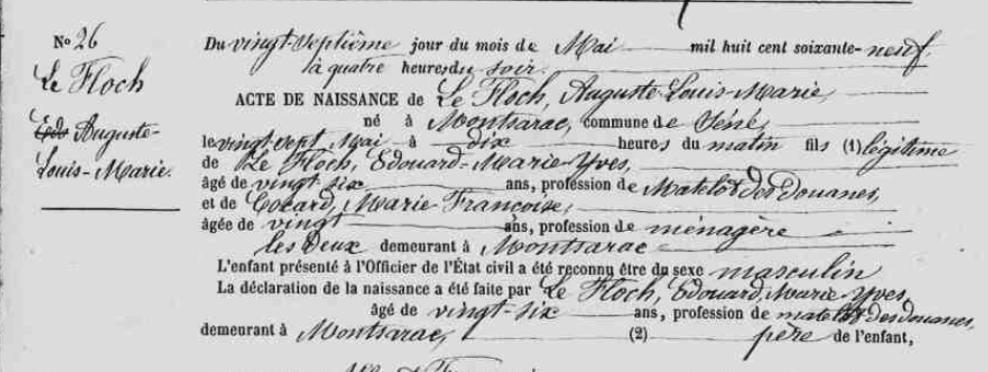 No 26
Le Floch
Edo Auguste-
Louis-Marie.
Du vingt-septième jour du mois de Mai mil huit cent soixante-neuf
à quatre heures du soir.
ACTE DE NAISSANCE de Le Floch, Auguste-Louis-Marie,
né à Montsarac, commune de Séné,
le vingt-sept Mai à dix heures du matin fils (1) légitime
de Le Floch, Edouard-Marie-Yves,
âgé de vingt six ans, profession de Matelot des Douanes,
et de Cocard, Marie Françoise,
âgée de vingt ans, profession de ménagère
les deux demeurant à Montsarac
L'enfant présenté à l'Officier de l'État civil a été reconnu être du sexe masculin
La déclaration de la naissance a été faite par Le Floch, Edouard Marie-Yves,
âgé de vingt-six ans, profession de matelot des douanes,
demeurant à Montsarac, (2) père de l'enfant,